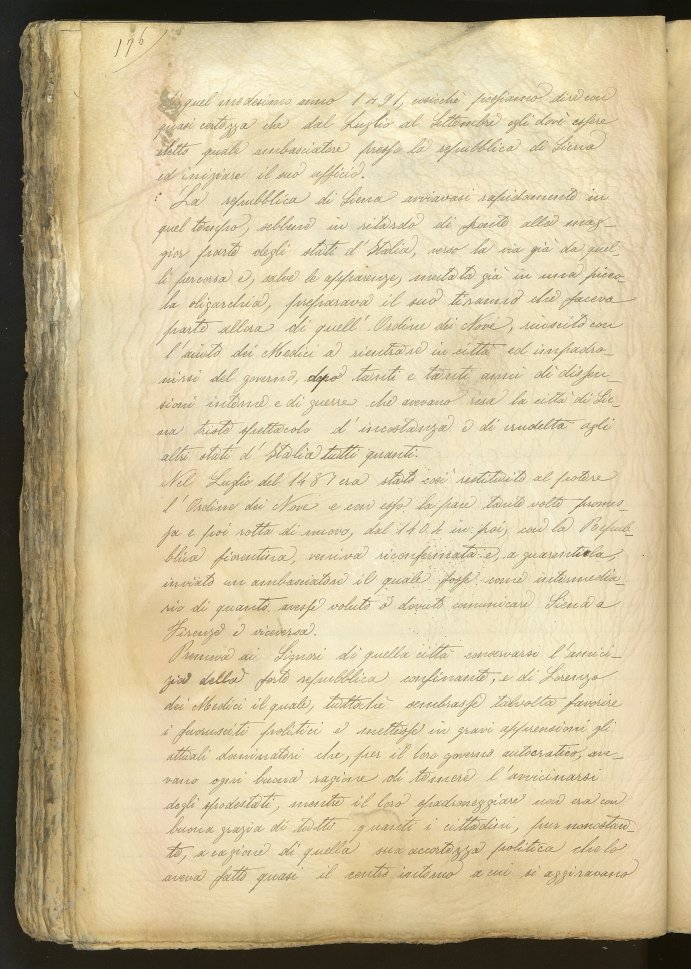 176
di quel medesimo anno 1491, cosicchè possiamo dire con
quasi certezza che dal Luglio al Settembre egli dovè essere
eletto quale ambasciatore presso la repubblica di Siena
ed iniziare il suo ufficio.
La repubblica di Siena avviavasi rapidamente in
quel tempo, sebbene in ritardo di fronte alla mag-
gior parte degli stati d'Italia, verso la via già da quel-
li percorsa e, salve le apparenze, mutata già in una picco-
la oligarchia, preparava il suo tiranno che faceva
parte allora di quell'Ordine dei Nove, riuscito con
l'aiuto dei Medici a rientrare in città ed impadro-
nirsi del governo, dopo tanti e tanti anni di dissen-
sioni interne e di guerre che avevano resa la città di Sie-
na triste spettacolo d'incostanza e di crudeltà agli
altri stati d'Italia tutti quanti.
Nel Luglio del 1487 era stato così restituito al potere
l'Ordine dei Nove e con esso la pace tante volte promes-
sa e poi rotta di nuovo, dal 1404 in poi, con la Repub-
blica fiorentina, veniva riconfermata e, a guarentirla,
inviato un ambasciatore il quale fosse come intermedia-
rio di quanto avesse voluto o dovuto comunicare Siena a
Firenze e viceversa.
Premeva ai Signori di quella città conservarsi l'amici-
zia della forte repubblica confinante, e di Lorenzo
dei Medici il quale, tuttochè sembrasse talvolta favorire
i fuorusciti politici e mettesse in gravi apprensioni gli
attuali dominatori che, per il loro governo autocratico, ave-
vano ogni buona ragione di temere l'avvicinarsi
degli spodestati, mentre il loro spadroneggiare non era con
buona grazia di tutti quanti i cittadini, pur nonostan-
te, a cagione di quella sua accortezza politica che lo
aveva fatto quasi il centro intorno a cui si aggiravano